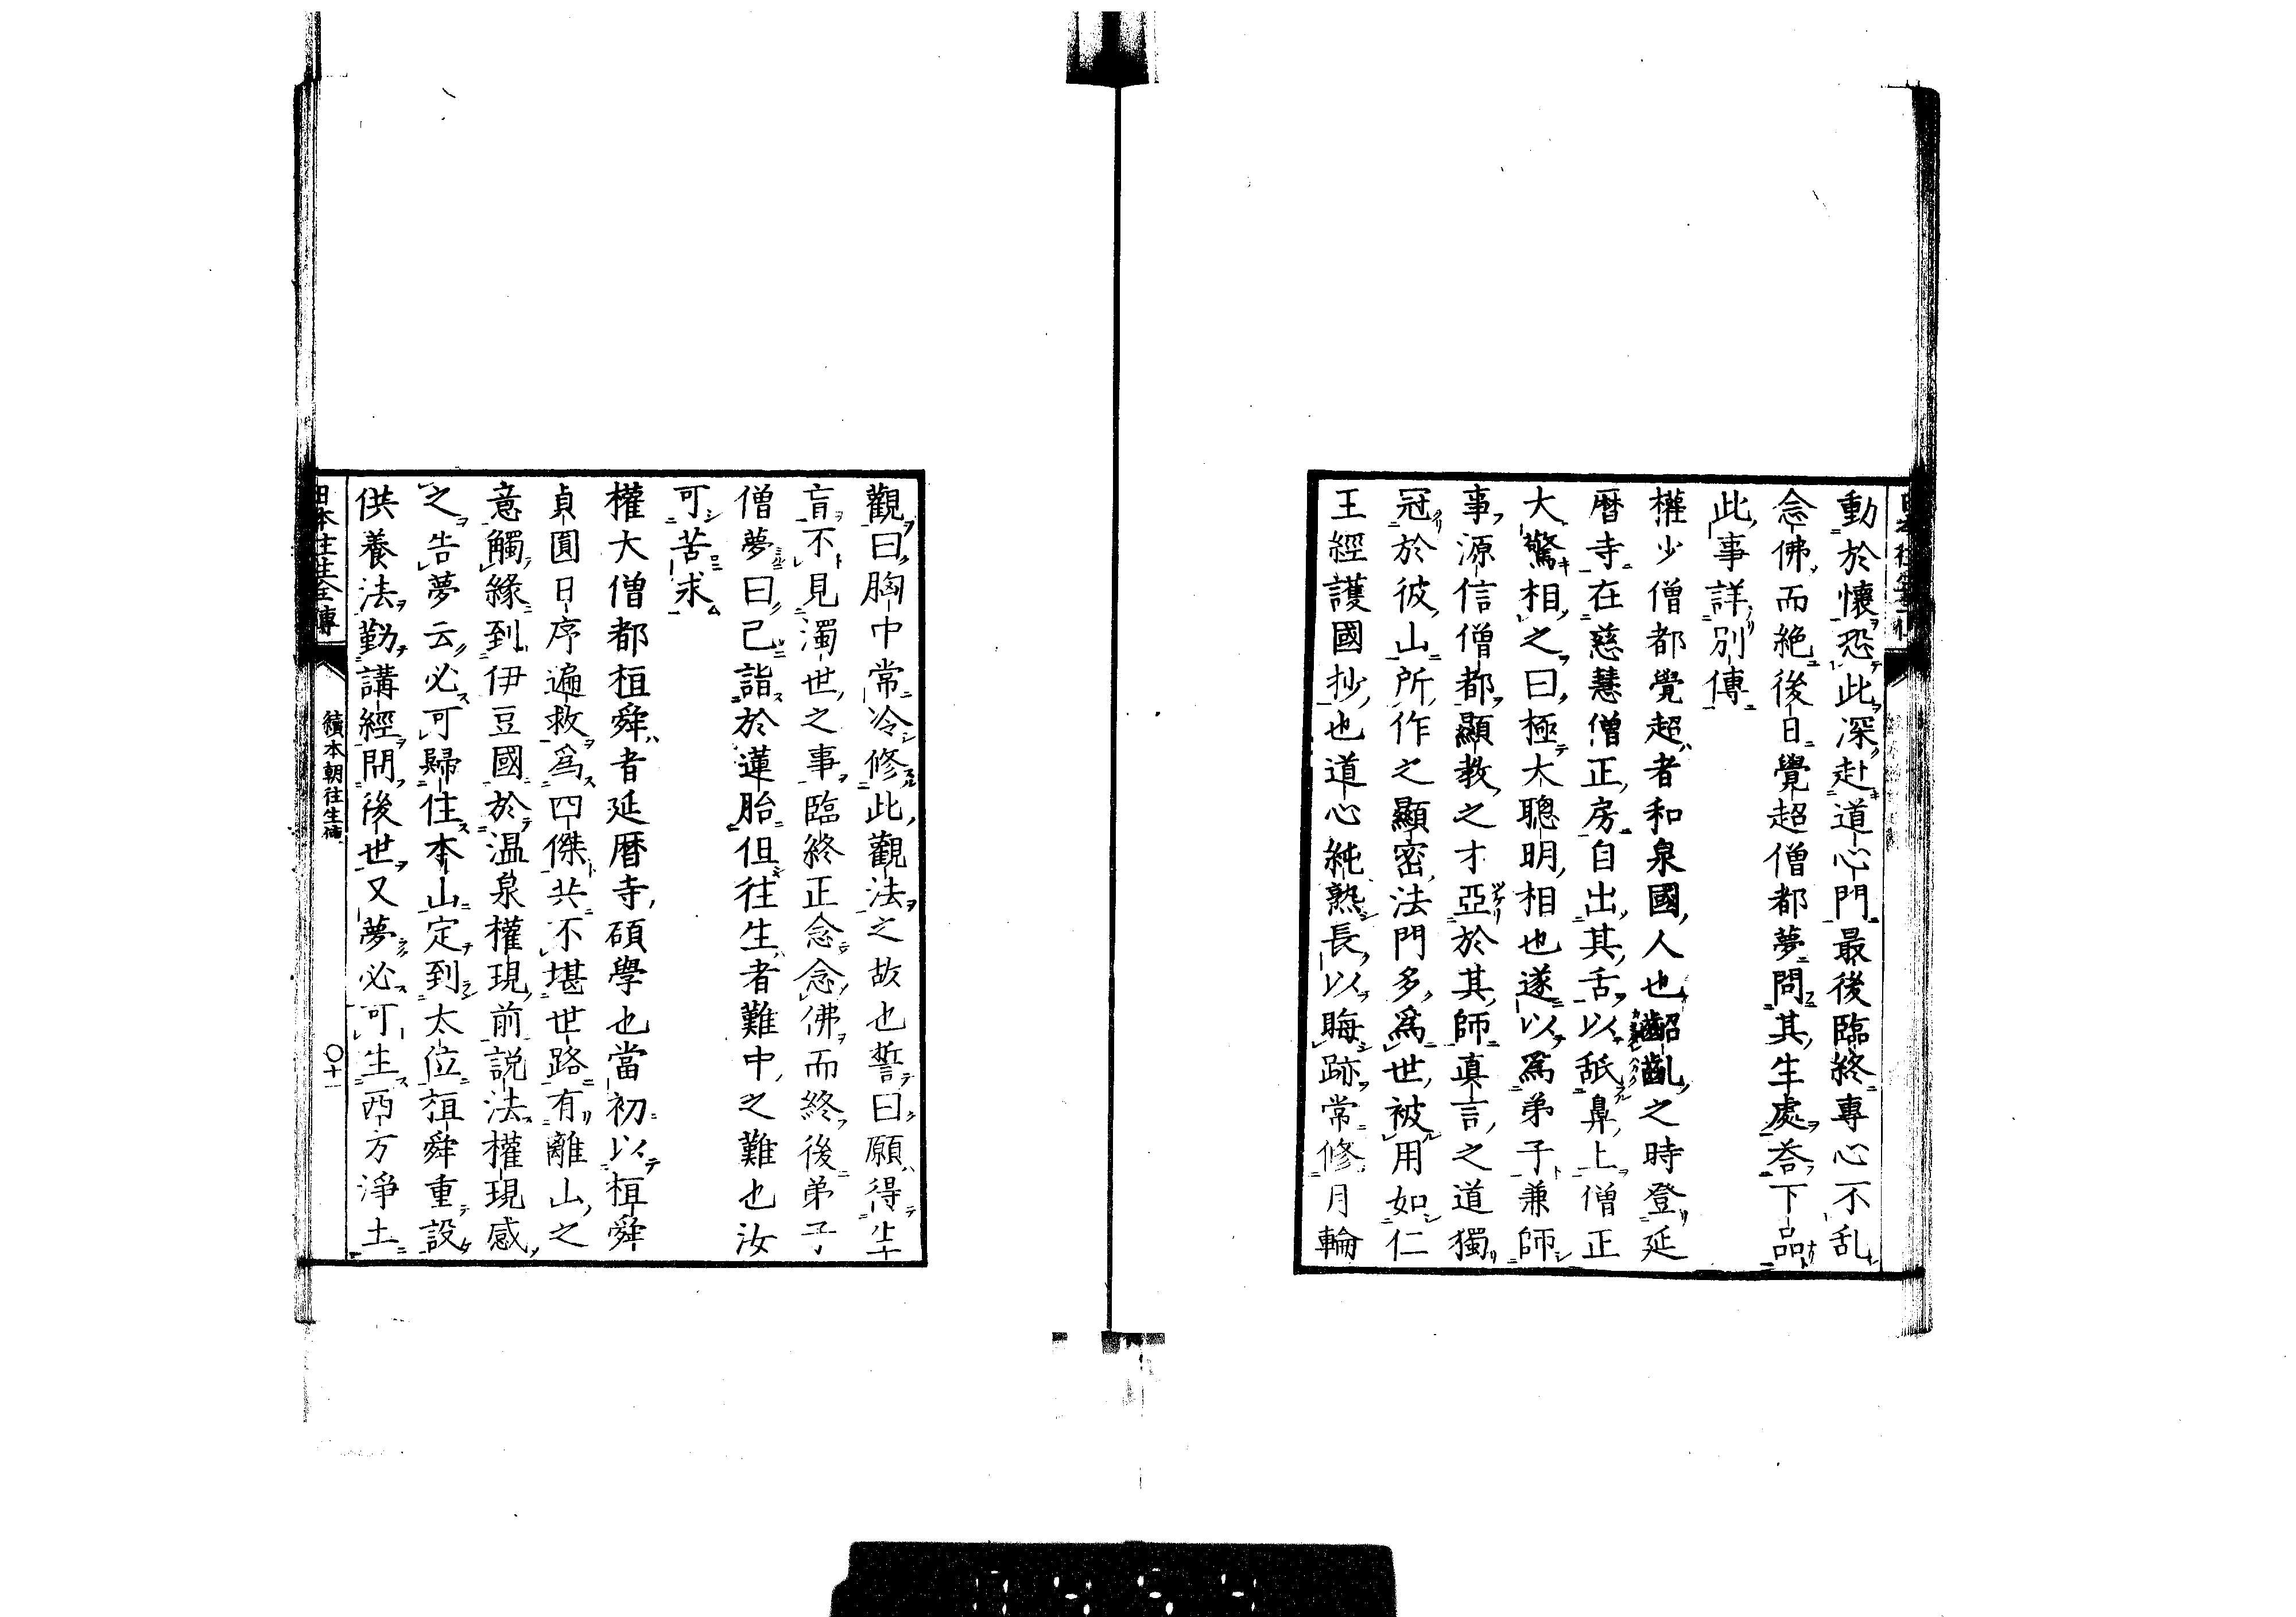 動於懷恐此深赴道心門最後臨終專心不乱
念佛而絶後日覺超僧都夢問其生處荅下品
此事詳別傳
權少僧都覺超者和泉國人也齠齔之時登延
曆寺在慈慧僧正房自出其舌以舐鼻上僧正
大驚相之曰極太聰明相也遂以爲弟子兼師
事源信僧都顯教之才亞於其師真言之道獨
冠於彼山所作之顯密法門多爲世被用如仁
王經護國抄也道心純熟長以晦跡常修月輪
觀曰胸中常冷修此觀法之故也誓曰願得生
盲不見濁世之事臨終正念念佛而終後弟子
僧夢曰己詣於蓮胎但往生者難中之難也汝
可苦求
權大僧都桓舜者延曆寺碩學也當初以桓舜
貞圓日序遍救爲四傑共不堪世路有離山之
意觸緣到伊豆國於温泉權現前説法權現感
之告夢云必可歸住本山定到太位桓舜重設
供養法勤講經問後世又夢必可生西方淨土
日本往生全傳
續本朝往生傳
〇十一